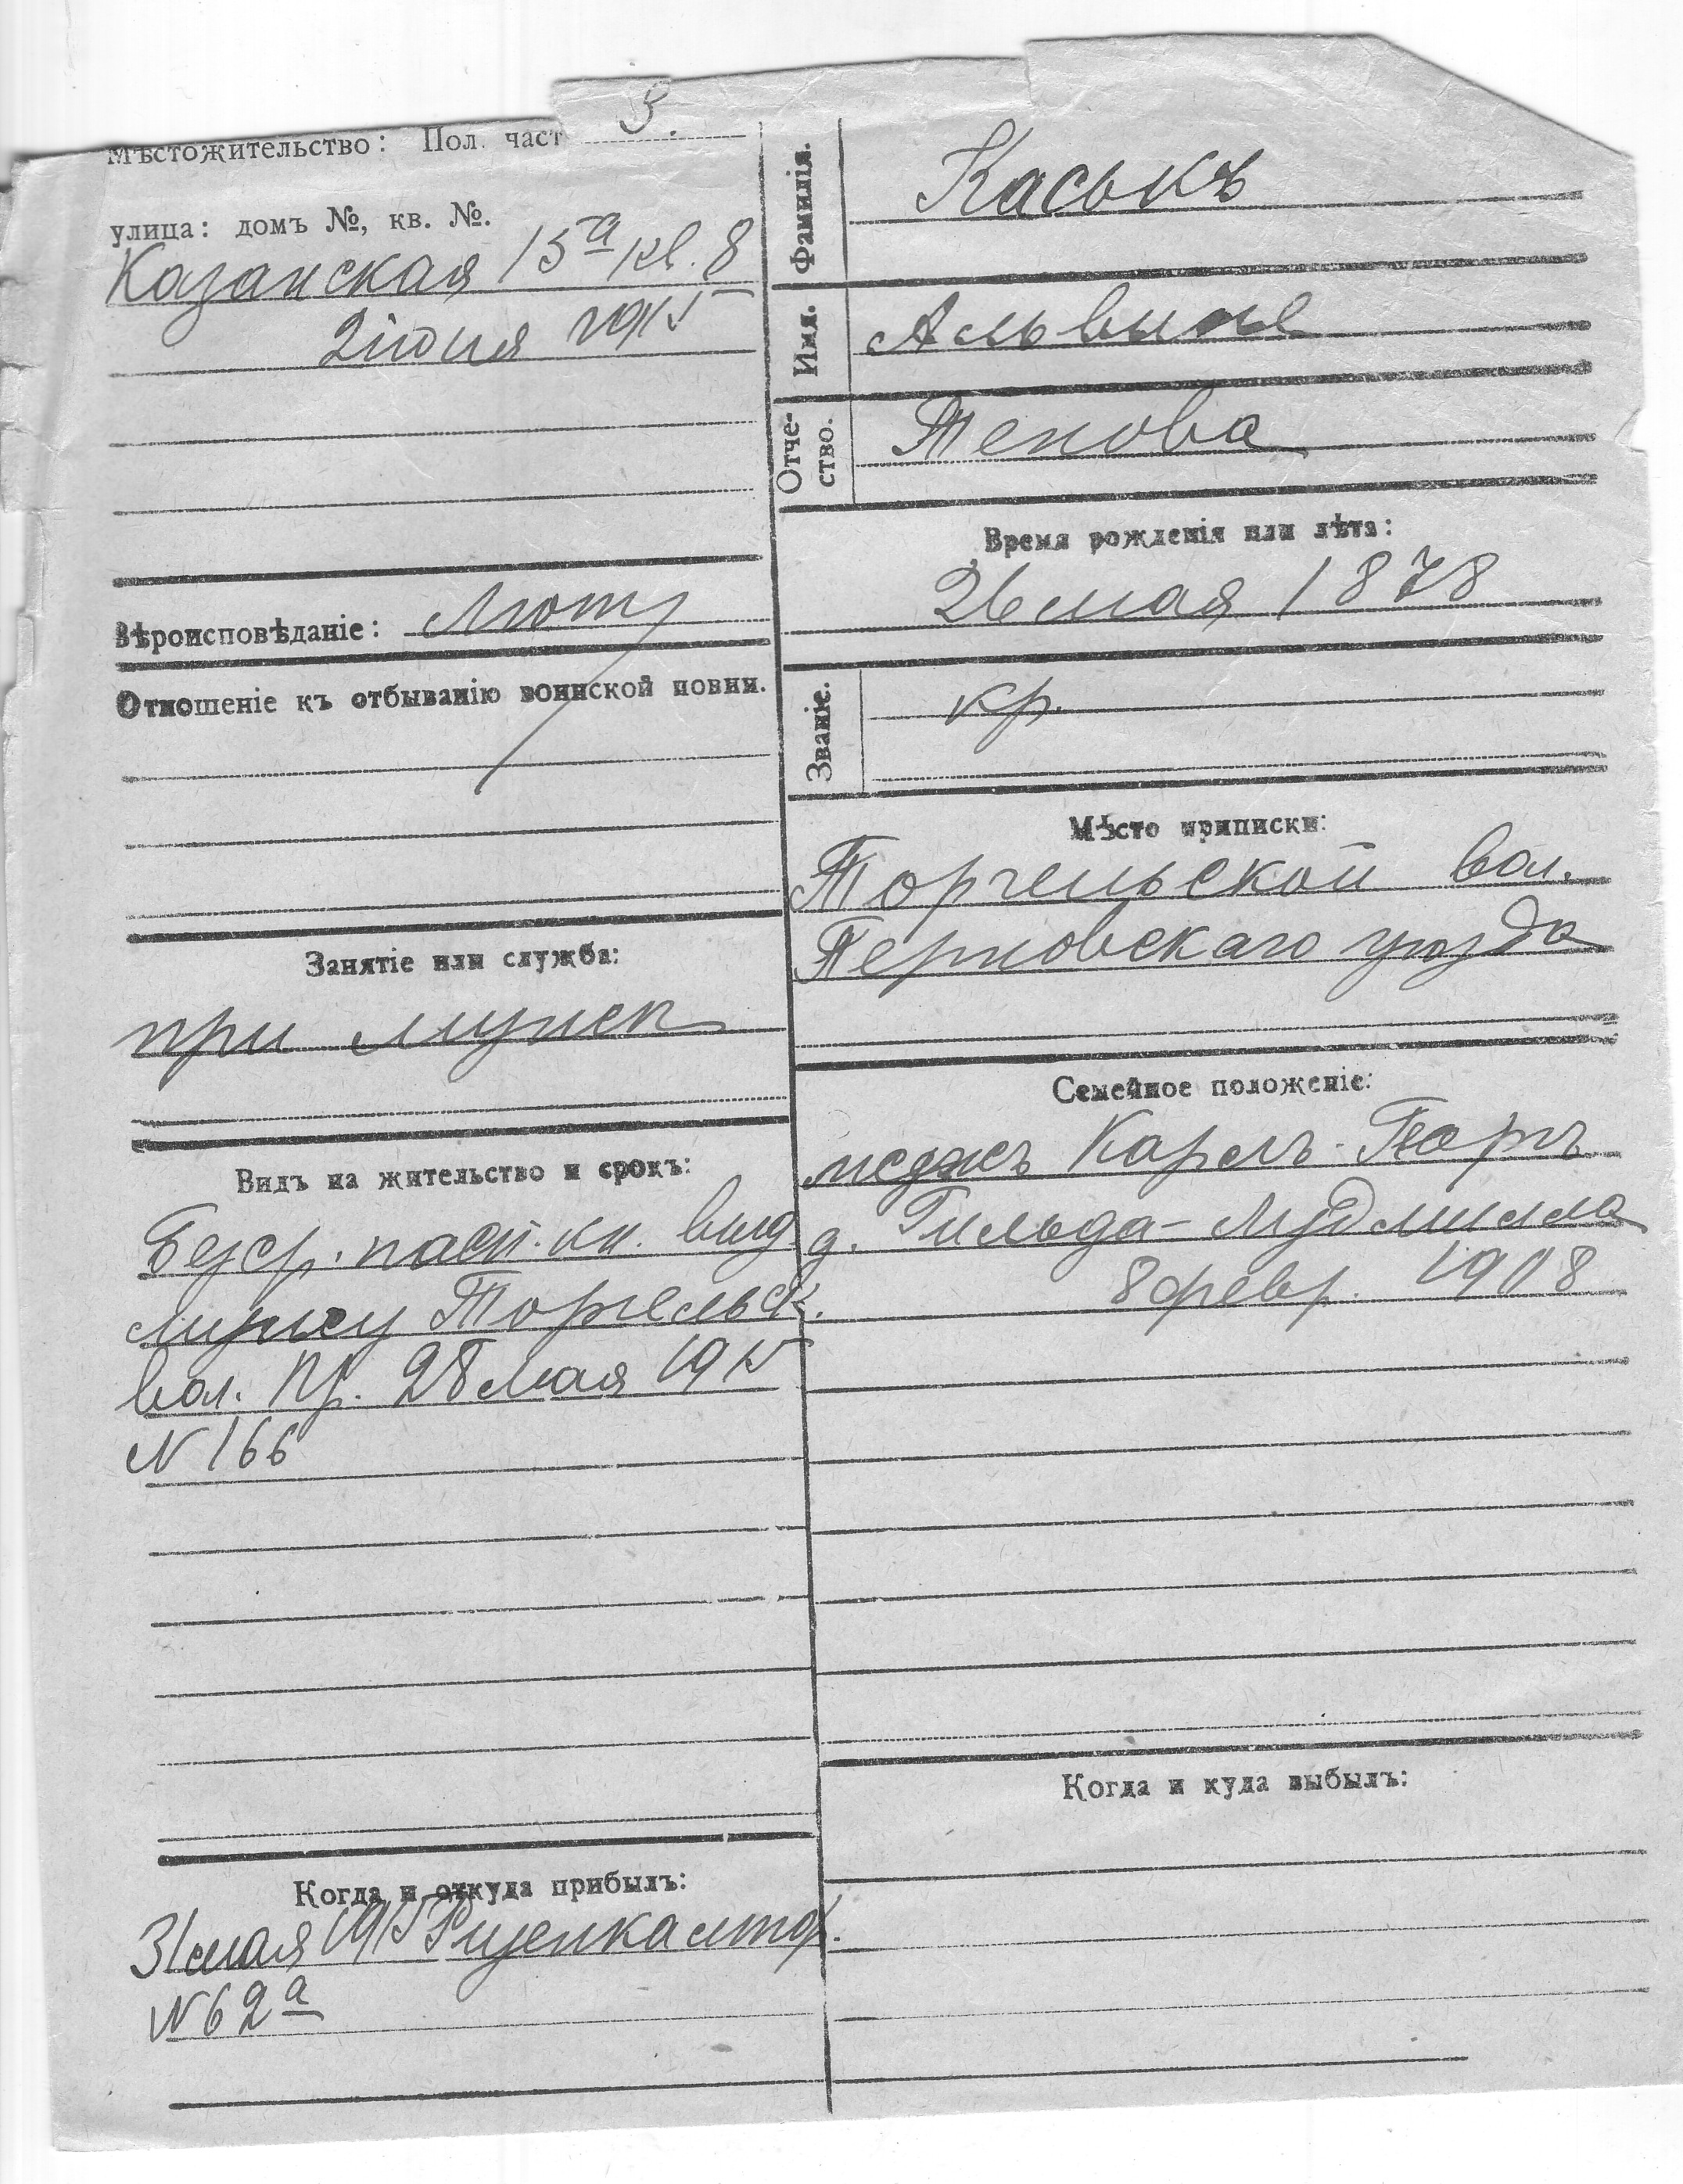 Мѣстожительство: Пол. част 3.
улица: домъ №, кв. №.
Казанская 15а кв. 8
2 июня 1915
Вѣроисповѣданіе: Лют
Отношеніе къ отбыванію воинской повин.
Занятіе или служба:
при мужѣ
Видъ на жительство и срокъ:
Безср. пасп. кн. выд
мужу Торгельск.
вол. пр. 28 мая 1915
N 166
Когда и откуда прибылъ:
31 мая 1915
N 62а
Фамилія. Каськъ
Имя. Альвине
Отчество. Тенова
Время рожденія или лѣта:
26 мая 1878
Званіе. кр.
Мѣсто приписки:
Торгельской вол.
Перновскаго уѣзда
Семейное положеніе:
мужъ Карлъ
д. Гильда-Людмилла
8 февр. 1908
Когда и куда выбылъ: